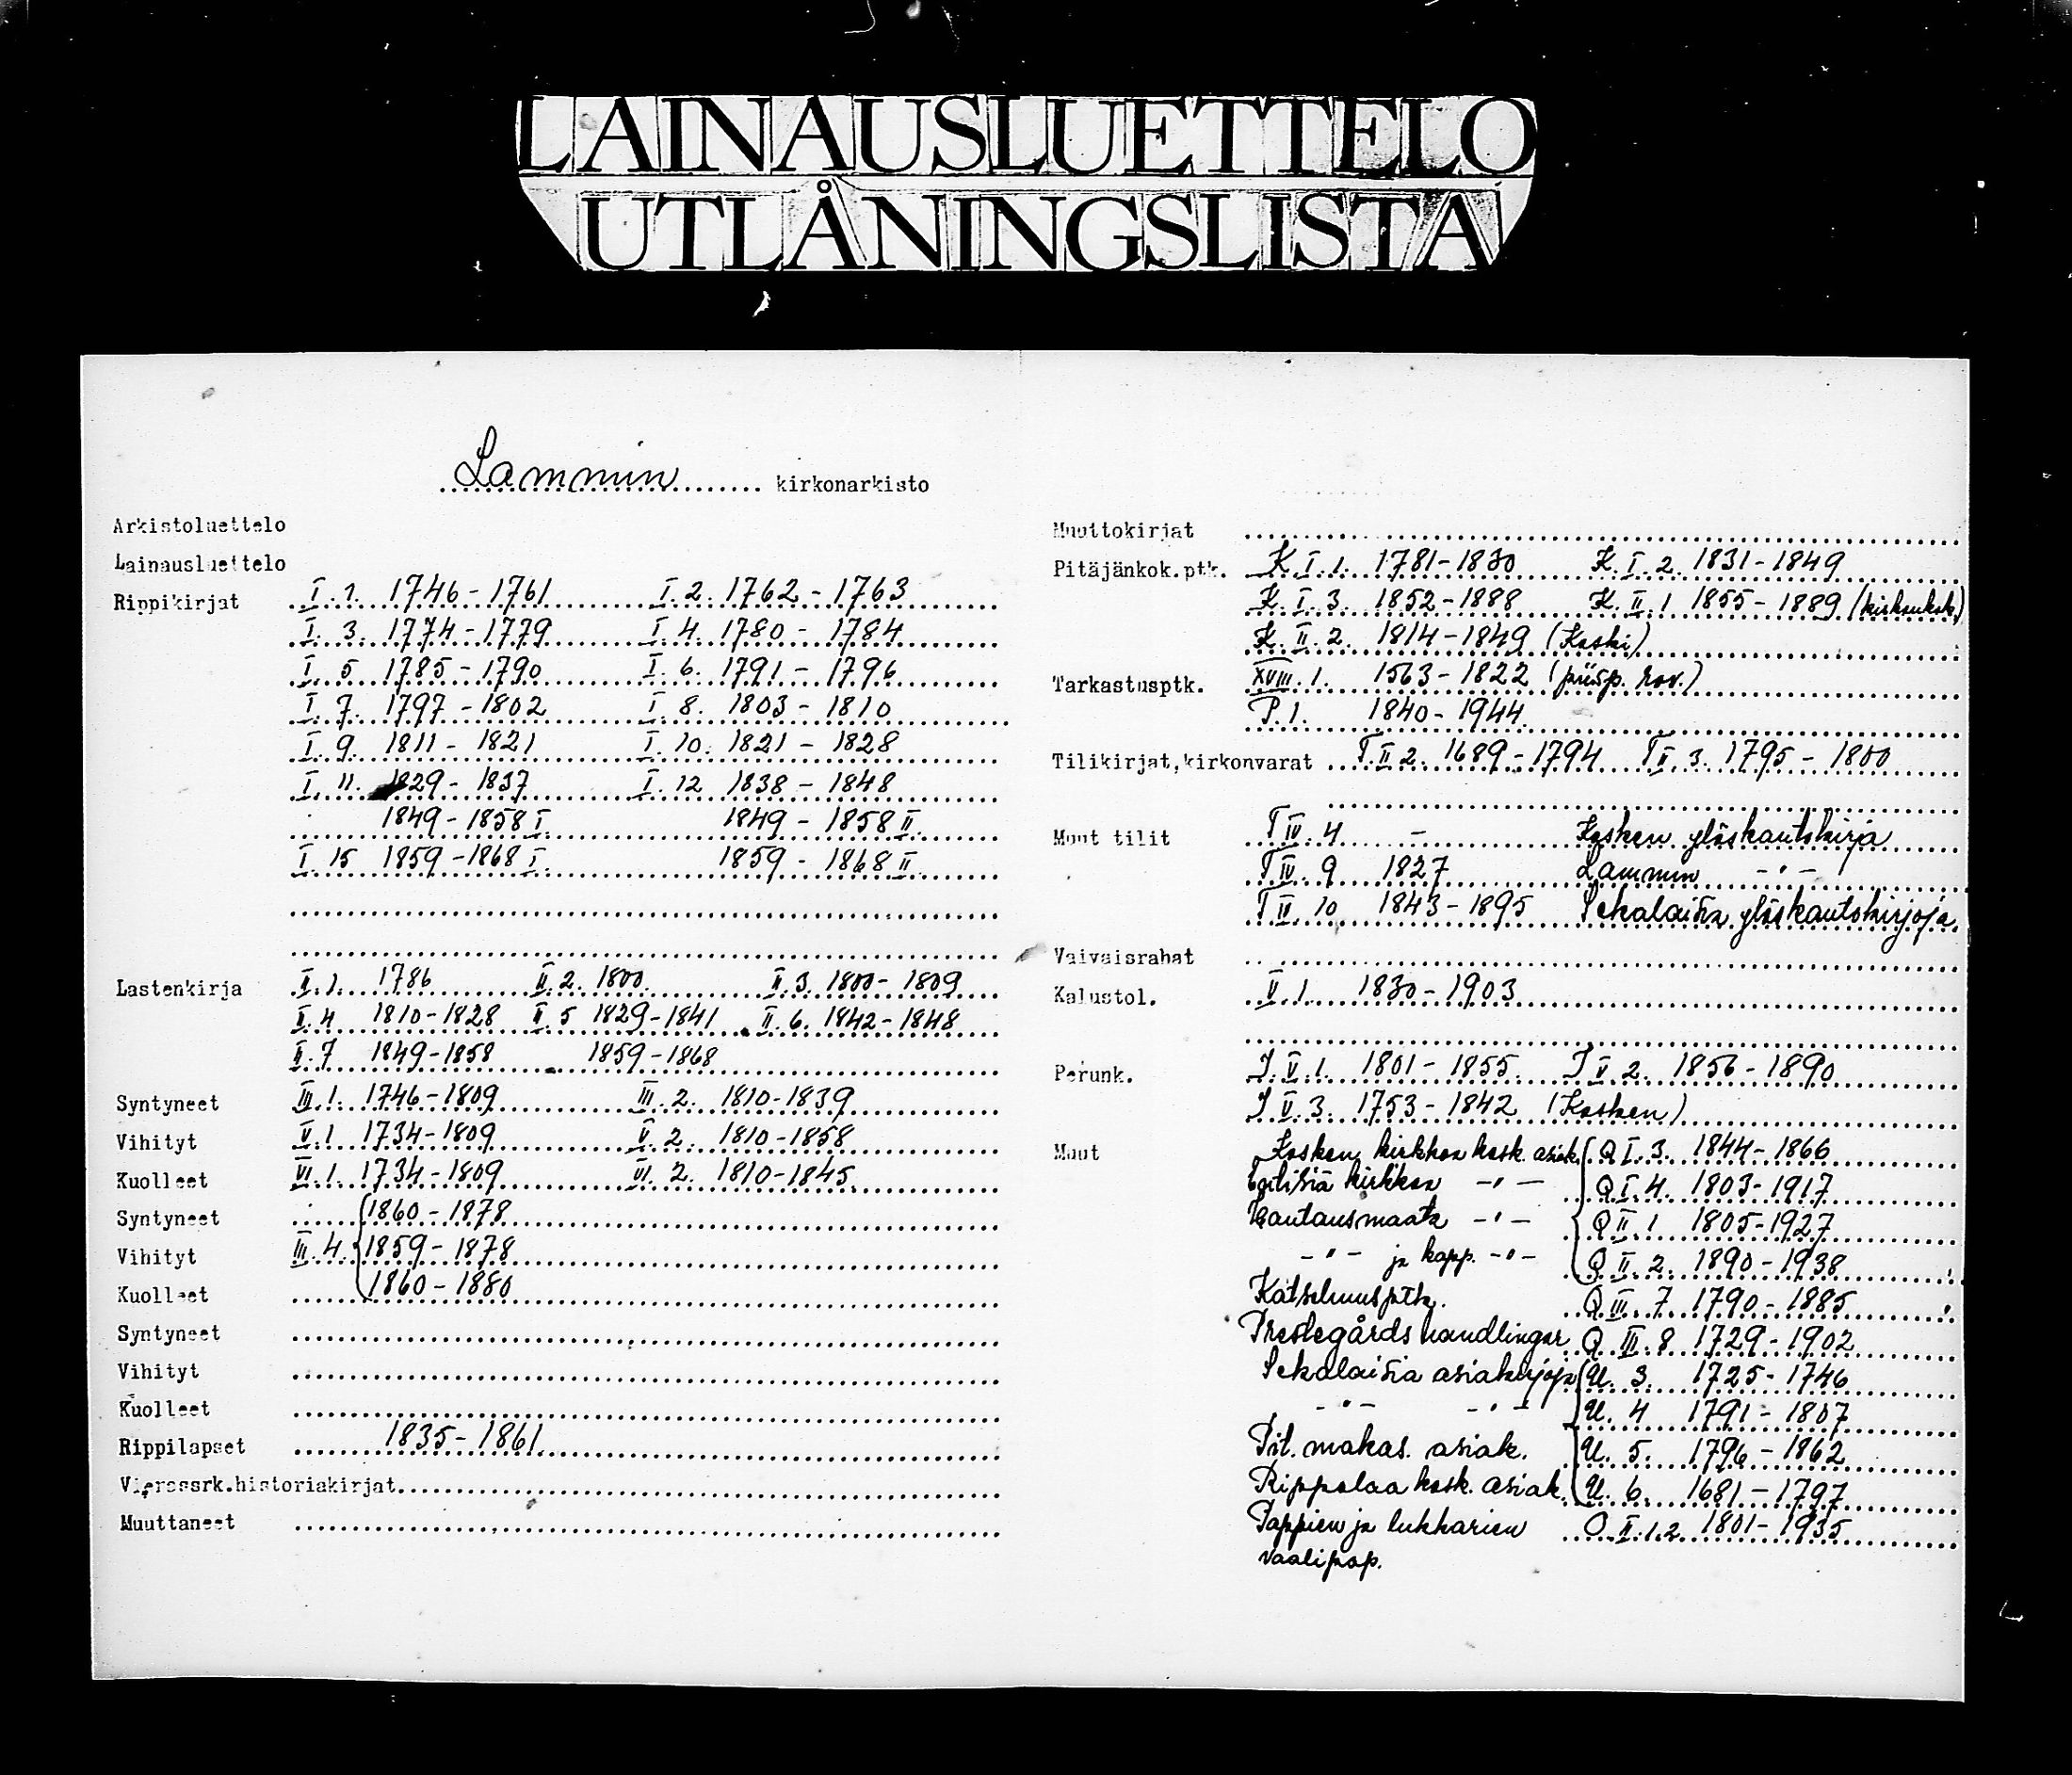 LAINAUSLUETTELO
UTLÅNINGSLISTA
Lammin kirkonarkisto
Arkistoluettelo
Lainausluettelo
Rippikirjat I.1. 1746-1761 I.2. 1762-1763
I.3. 1774-1779 I.4. 1780-1784
I.5 1785-1790 I.6. 1791-1796
I.7. 1797-1802 I.8. 1803-1810
I.9. 1811-1821 I.10. 1821-1828
I.11. 1829-1837 I.12 1838-1848
1849-1858 I. 1849-1858 II.
I.15 1859-1868 I. 1859-1868 II
Lastenkirja II.1. 1786 II.2. 1800. II.3. 1800-1809
II.4 1810-1828 II.5 1829-1841 II.6. 1842-1848
II.7 1849-1858 1859-1868
Syntyneet III.1. 1746-1809 III.2. 1810-1839
Vihityt V.1 1734-1809 V.2. 1810-1858
Kuolleet VI.1. 1734-1809 VI.2. 1810-1845
Syntyneet 1860-1878
Vihityt III.4. 1859-1878
Kuolleet 1860-1880
Syntyneet
Vihityt
Kuolleet
Rippilapset 1835-1861
Vierassrk.historiakirjat
Muuttaneet
Muuttokirjat
Pitäjänkok.ptk. K.I.1. 1781-1830 K.I.2. 1831-1849
K.I.3. 1852-1888 K.II.1 1855-1889 (kirkonkok.)
K.II.2. 1814-1849 (Koski)
Tarkastusptk. XVIII.1. 1563-1822 (piisp. rov.)
P.1. 1840-1944.
Tilikirjat,kirkonvarat T.II.2. 1689-1794 T II.3. 1795-1800
Muut tilit T IV.4 - Kosken ylöskantokirja
T IV.9 1827 Lammin -"-
T IV.10 1843-1895 Sekalaisia ylöskantokirjoja.
Vaivaisrahat
Kalustol. V.1. 1830-1903
Perunk. J.V.1. 1801-1855. J V 2. 1856-1890
J V.3. 1753-1842 (Kosken)
Muut Kosken kirkkoa kosk. asiak. Q I.3. 1844-1866
kirkkoa -"- Q I.4. 1803-1917
Hautausmaata -"- Q II.1 1805-1927
-"- ja kapp. -"- Q II.2. 1890-1938
Katselmusptk. Q III.7 1790-1885
Prestegårds handlingar Q III.8 1729-1902
Sekalaisia asiakirjoja U.3. 1725-1746
-"- -"- U.4 1791-1807
Pit. makas. asiak. U.5. 1796-1862
Rippalaa kosk. asiak. U.6. 1681-1797
Pappien ja lukkarien O II.1.2 1801-1935
vaalipap.